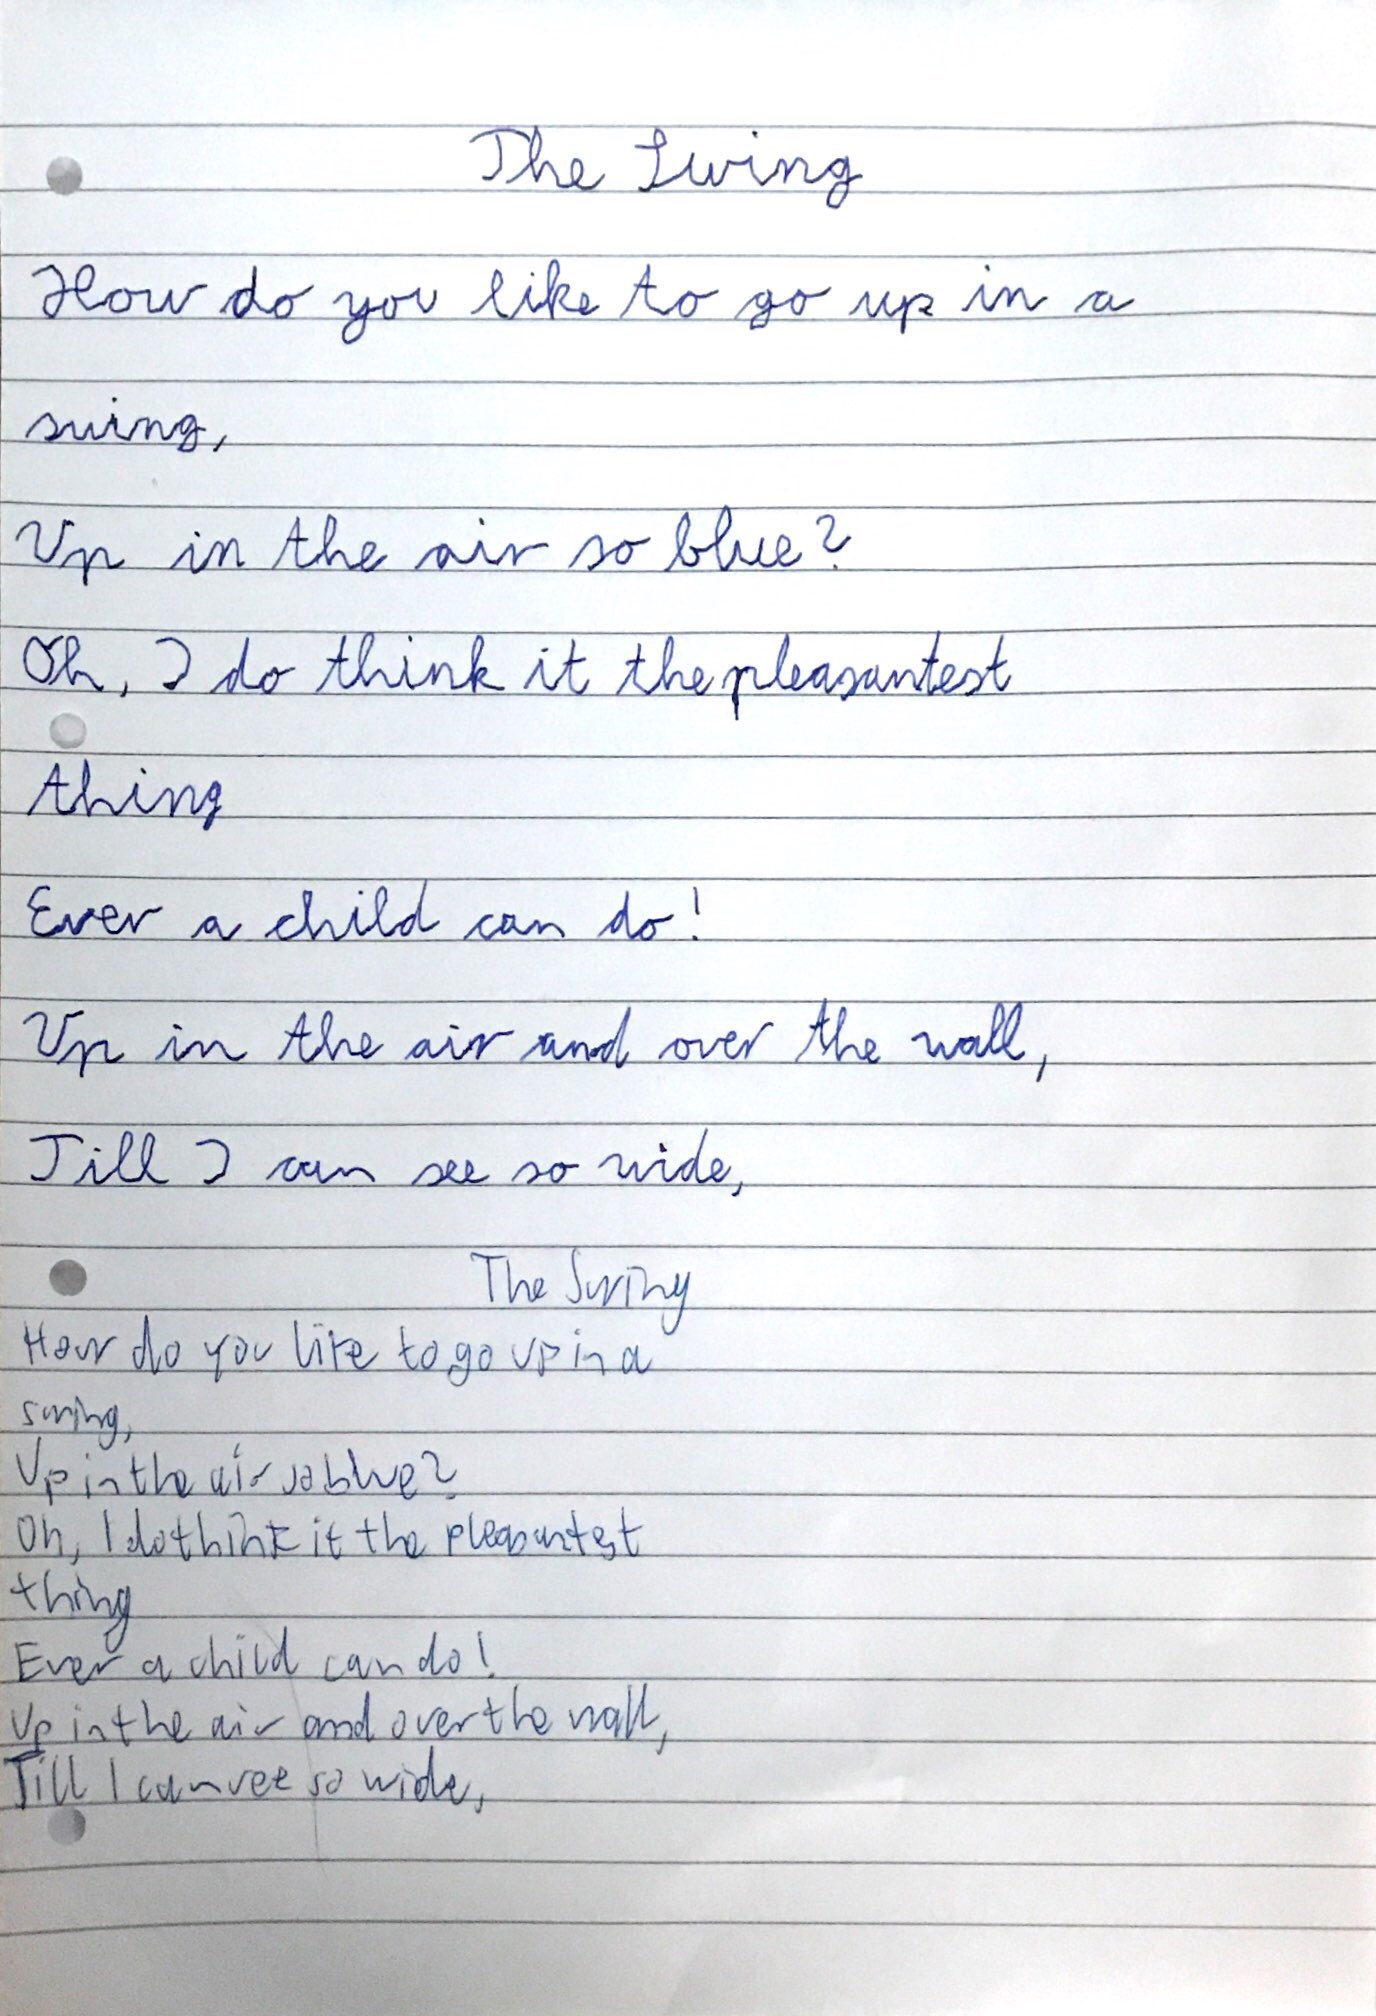 The Swing
How do you like to go up in a
swing,
Up in the air so blue?
Oh, I do think it the pleasantest
thing
Ever a child can do!
Up in the air and over the wall,
Till I can see so wide,
The Swing
How do you like to go up in a
swing,
Up in the air so blue?
Oh, I do think it the pleasantest
thing
Ever a child can do!
Up in the air and over the wall,
Till I can see so wide,